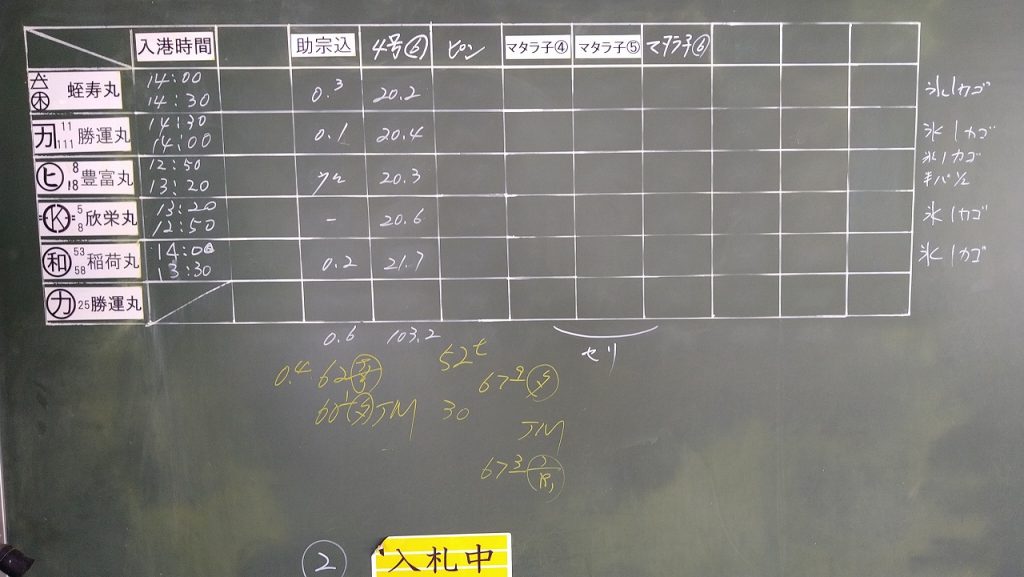 入港時間 助宗込 4号② ピン マタラ子④ マタラ子⑤ マタラ子⑥
蛭寿丸 14:00 14:30 0.3 20.2 氷1カゴ
カ 11 111 勝運丸 14:30 14:00 0.1 20.4 氷1カゴ
氷1カゴ
ヒ 8 18 豊富丸 12:50 13:20 20.3
K 5 8 欣栄丸 13:20 12:50 - 20.6 氷1カゴ
和 53 58 稲荷丸 14:00 13:30 0.2 21.7 氷1カゴ
カ 25 勝運丸
0.6 103.2
セリ
52t
0.4 62
679
JM 30
JM
673
② 入札中